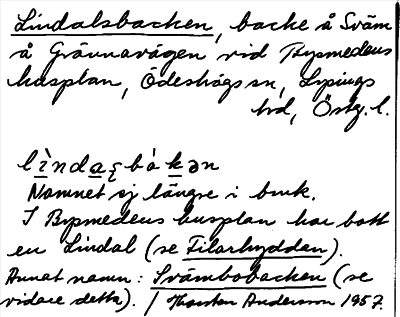 Lindalsbacken, backe å Sväm
å Grännavägen vid Bysmedens
husplan, Ödeshögs sn, Lysings
hd, Östg. l.
lìndaʂbákən
Namnet ej längre i bruk.
I Bysmedens husplan har bott
en Lindal (se Filarhyddan).
Annat namn: Svämbobacken (se
vidare detta). / Thorsten Andersson 1957.